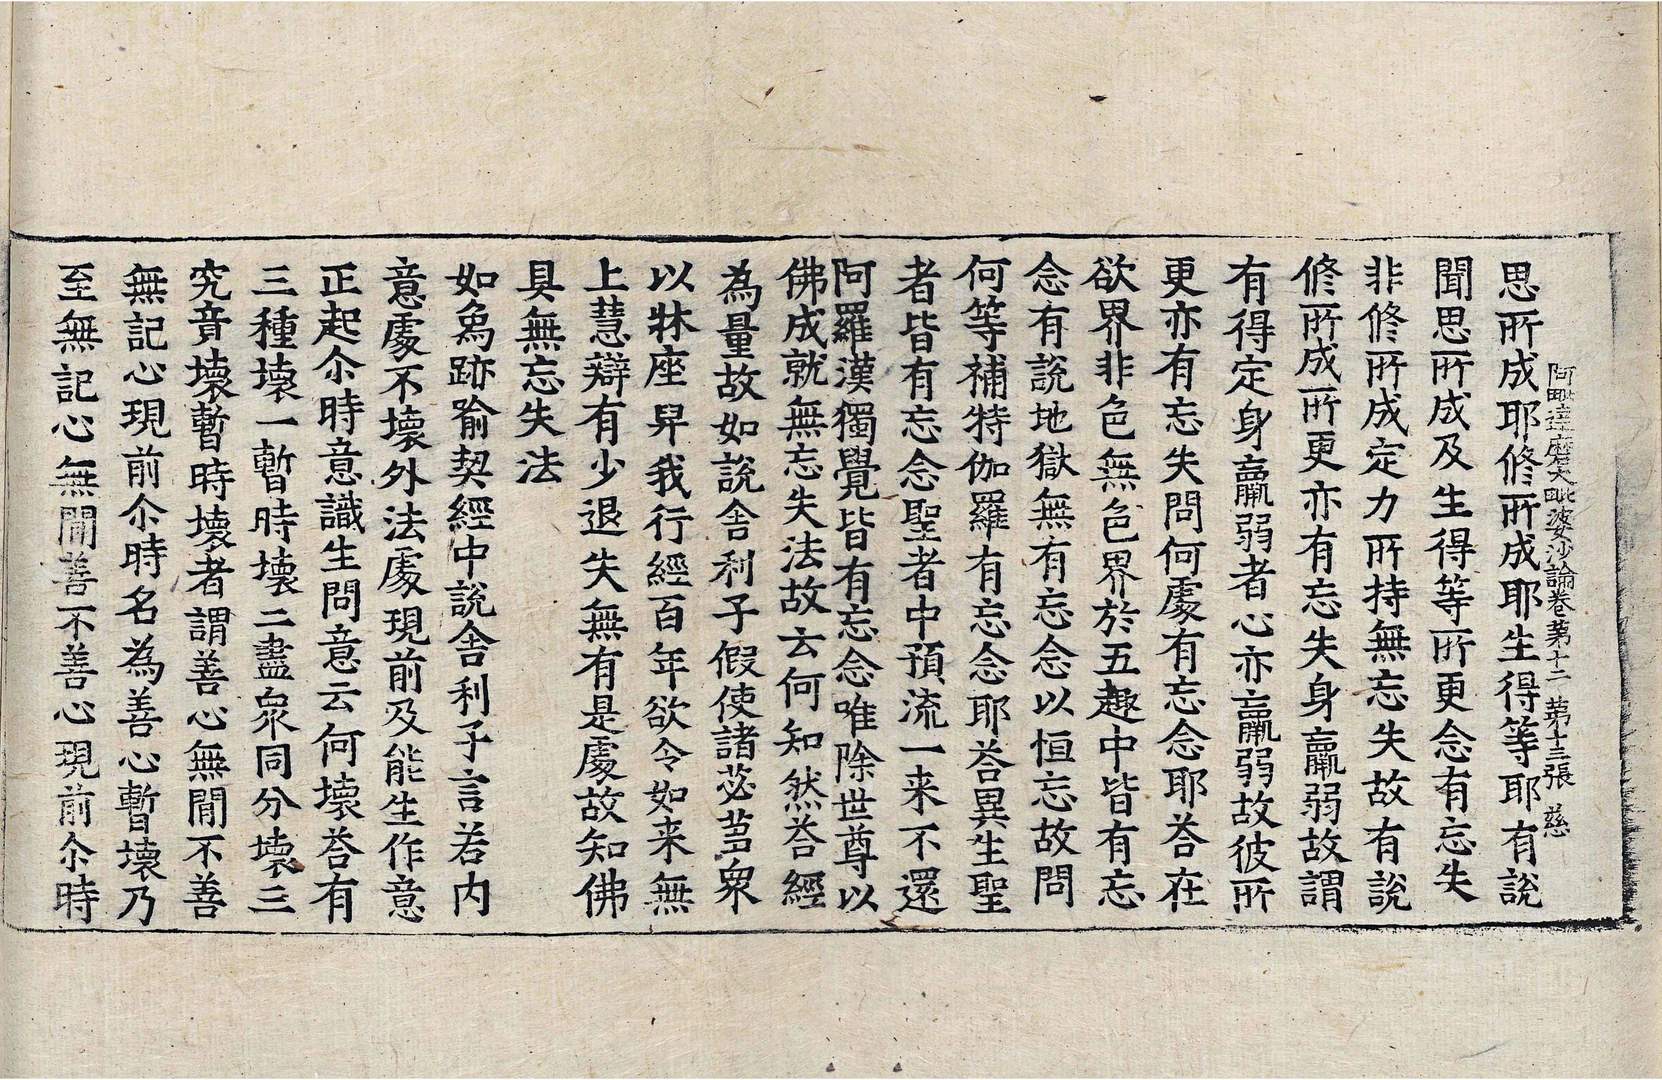 阿毗達磨大毗婆沙論卷苐十二 苐十三張 慈
思所成耶修所成耶生得等耶有說
聞思所成及生得等所更念有忘失
非修所成定力所持無忘失故有說
修所成所更亦有忘失身羸弱故謂
有得定身羸弱者心亦羸弱故彼所
更亦有忘失問何處有忘念耶荅在
欲界非色無色界於五趣中皆有忘
念有說地獄無有忘念以恒忘故問
何等補特伽羅有忘念耶荅異生聖
者皆有忘念聖者中預流一来不還
阿羅漢獨覺皆有忘念唯除世尊以
佛成就無忘失法故云何知然荅經
為量故如說舍利子假使諸苾芻衆
以牀座舁我行經百年欲令如来無
上慧辯有少退失無有是處故知佛
具無忘失法
如象跡喻契經中說舍利子言若内
意處不壞外法處現前及能生作意
正起尒時意識生問意云何壞荅有
三種壞一暫時壞二盡衆同分壞三
究竟壞暫時壞者謂善心無間不善
無記心現前尒時名為善心暫壞乃
至無記心無間善不善心現前尒時